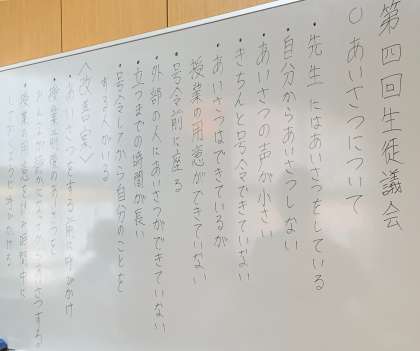 第四回生徒議会
○ あいさつについて
・先生にはあいさつをしている
・自分からあいさつしない
・あいさつの声が小さい
・きちんと号令できていない
・あいさつはできているが
授業の用意ができていない
・号令前に座る
・外部の人にあいさつができていない
・立つまでの時間が長い
・号令してから自分のことを
する人がいる
〈改善案〉
・あいさつをする前に呼びかけ
・授業前後のあいさつを